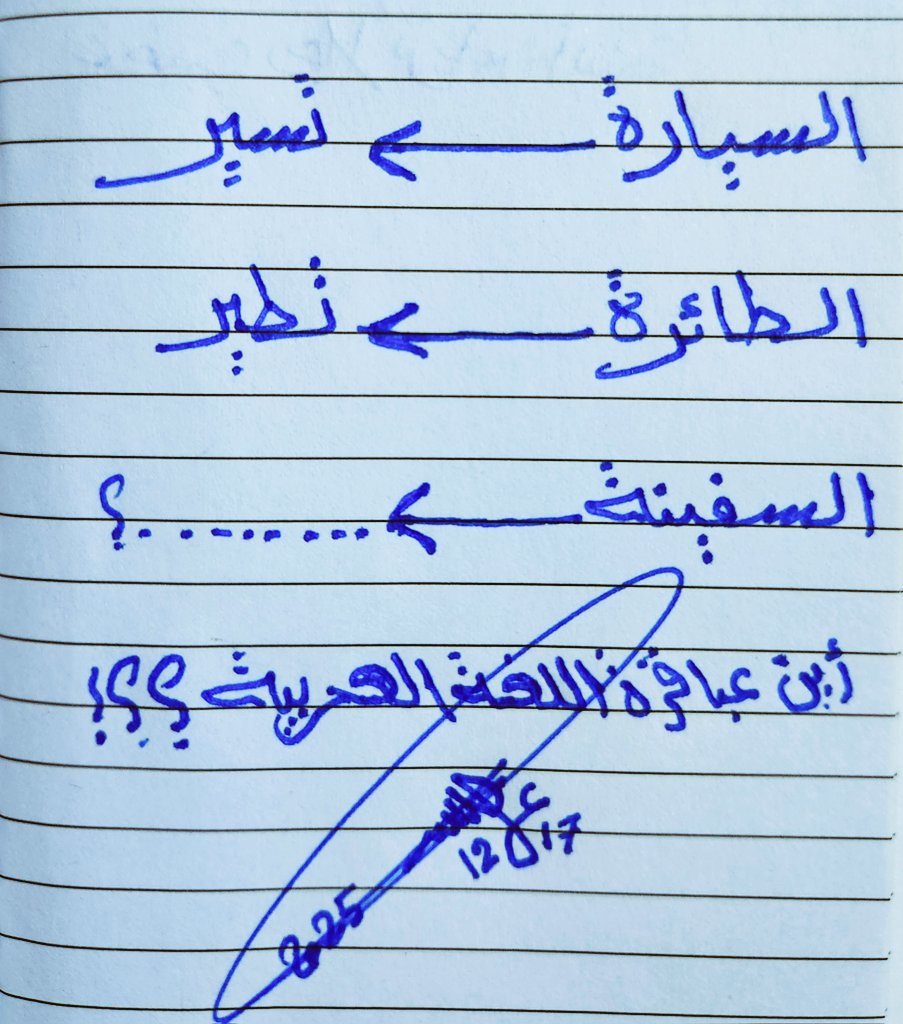 السيارة ← تسير
الطائرة ← تطير
السفينة ← ..........؟
أين عباقرة اللغة العربية ؟؟!
12 17
2025